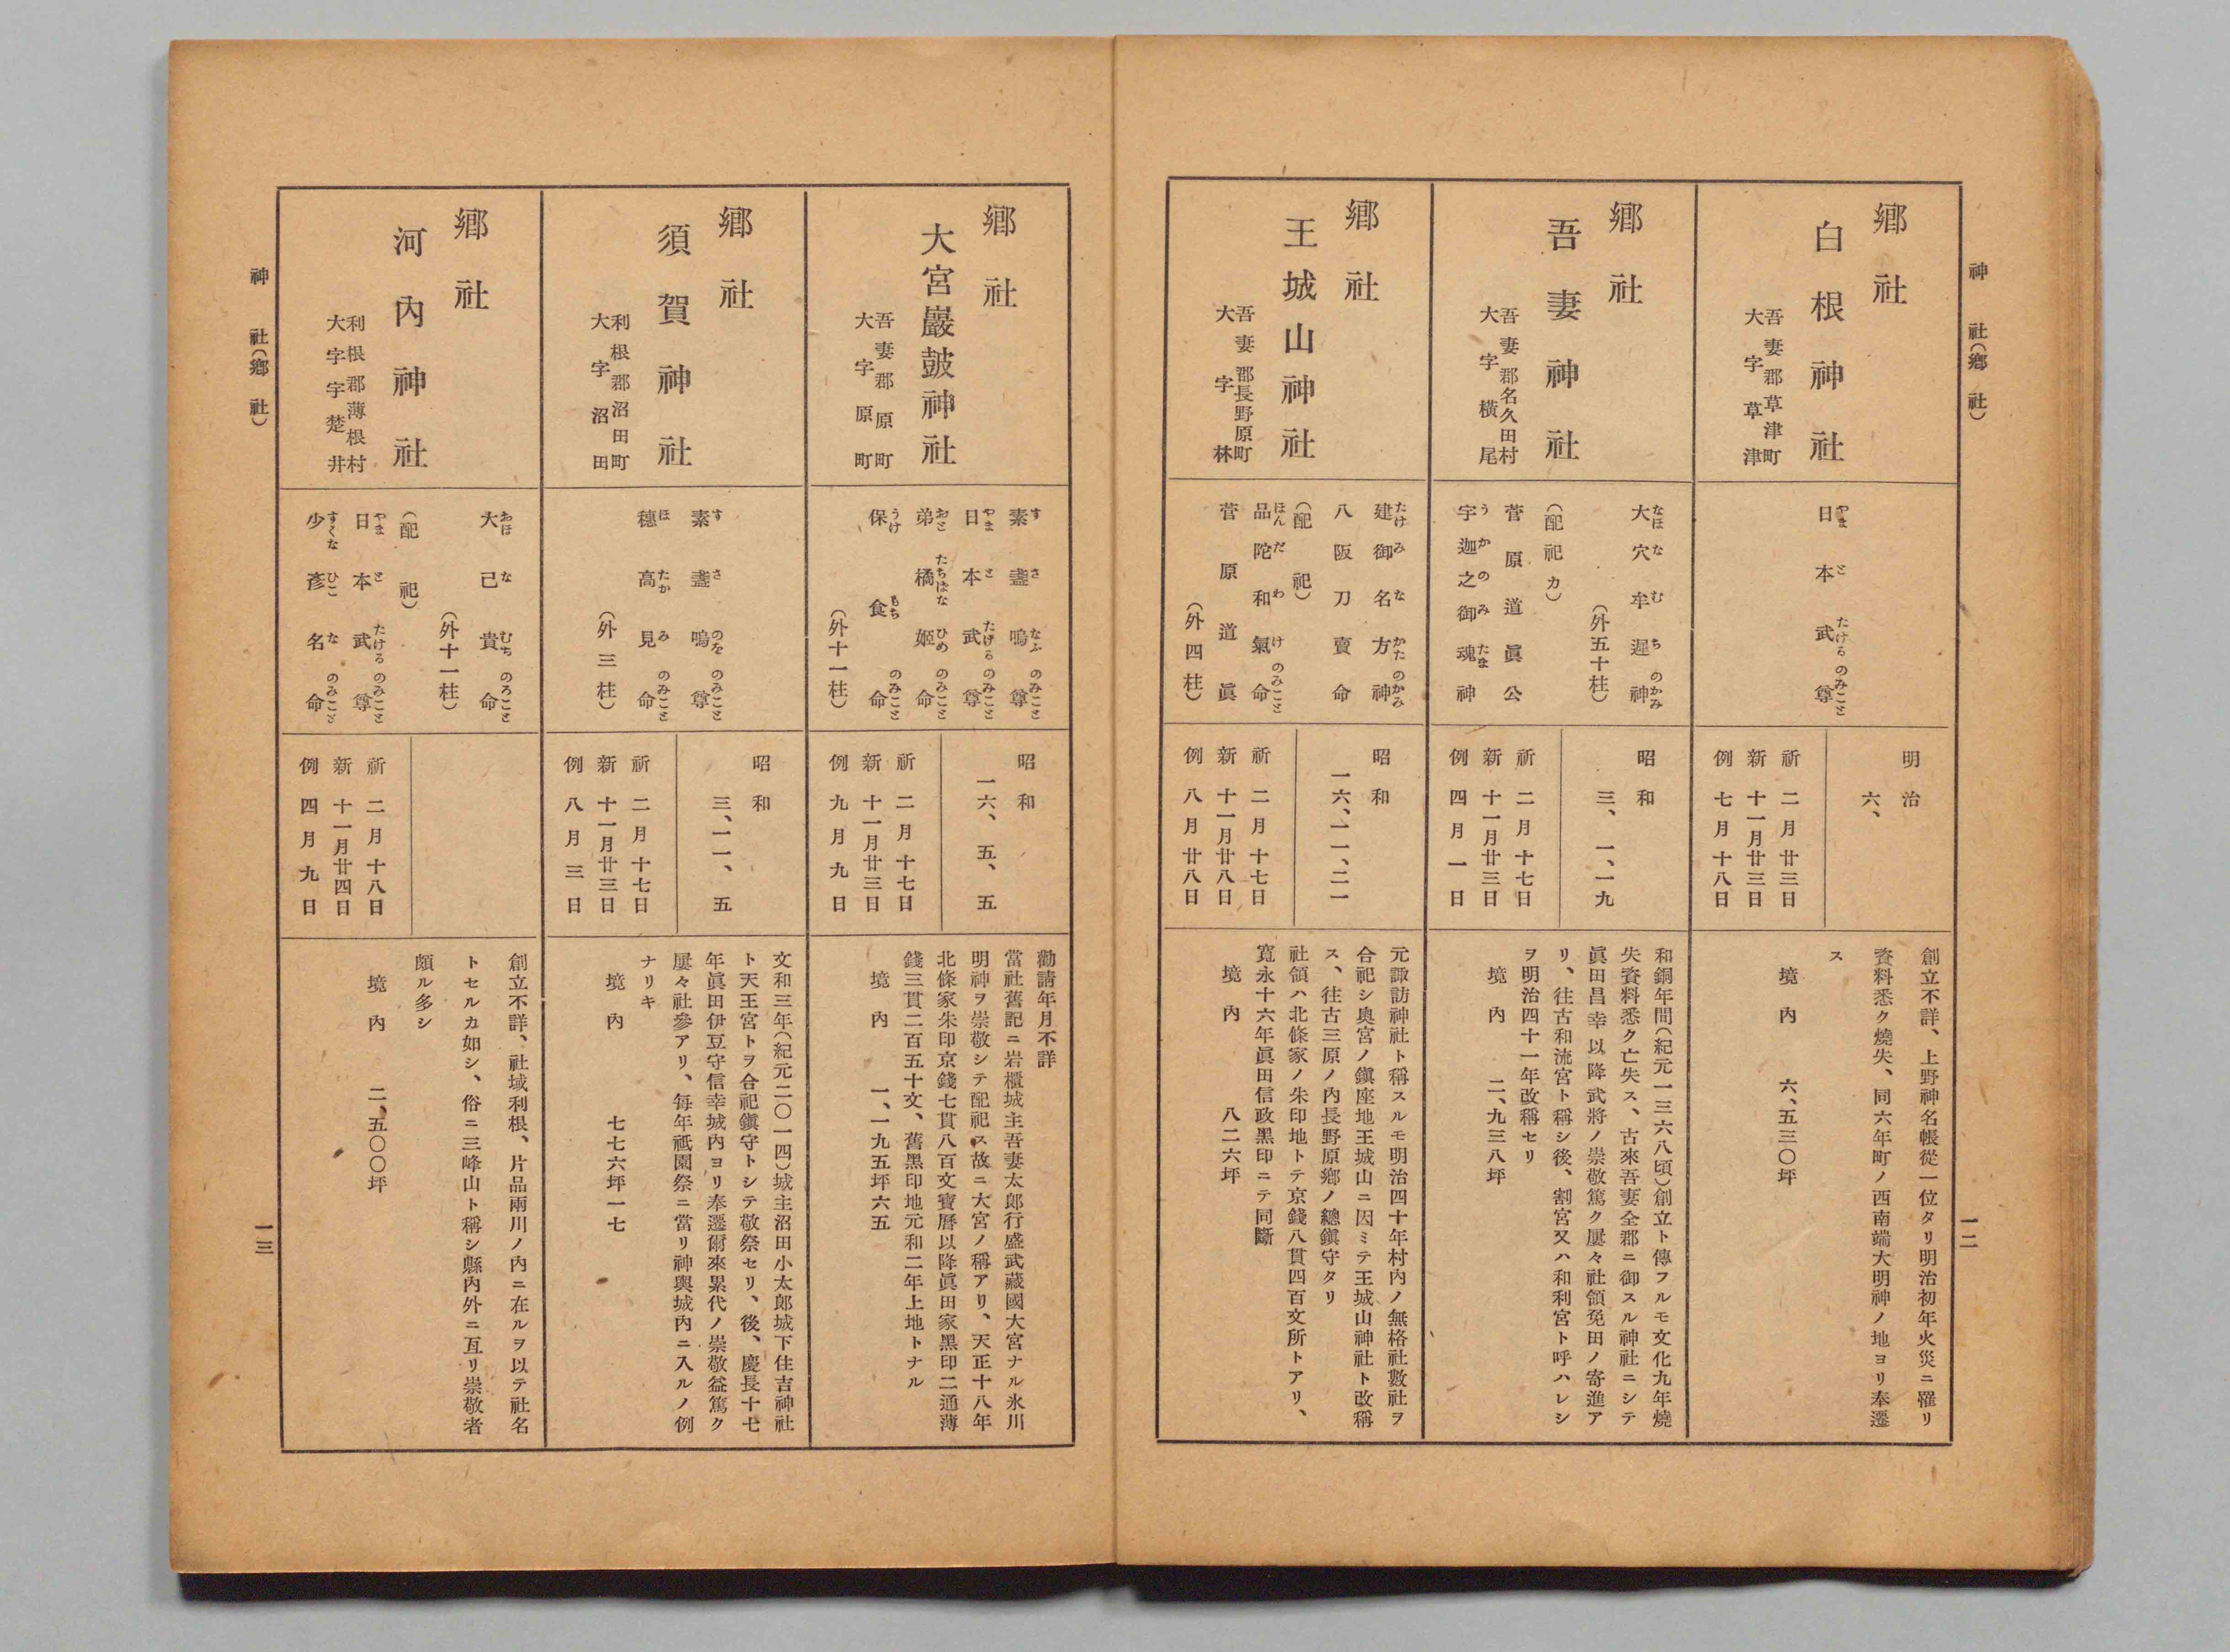 神社（鄕社）
一二
鄕社
白根神社
吾妻郡草津町
大字草津
日本武尊
やまとたけるのみこと
明治
六、
祈 二月廿三日
新 十一月廿三日
例 七月十八日
創立不詳、上野神名帳從一位タリ明治初年火災ニ罹リ
資料悉ク燒失、同六年町ノ西南端大明神ノ地ヨリ奉遷
ス
境內 六、五三〇坪
鄕社
吾妻神社
吾妻郡名久田村
大字橫尾
大穴牟遲神
なほなむちのかみ
（外五十柱）
（配祀カ）
菅原道眞公
宇迦之御魂神
うかのみたま
昭和
三、一、一九
祈 二月十七日
新 十一月廿三日
例 四月一日
和銅年間（紀元一三六八頃）創立ト傳フルモ文化九年燒
失資料悉ク亡失ス、古來吾妻全郡ニ御スル神社ニシテ
眞田昌幸以降武將ノ崇敬篤ク屢々社領免田ノ寄進ア
リ、往古和流宮ト稱シ後、割宮又ハ和利宮ト呼ハレシ
ヲ明治四十一年改稱セリ
境內 二、九三八坪
鄕社
王城山神社
吾妻郡長野原町
大字林
建御名方神
たけみなかたのかみ
八阪刀賣命
（配祀）
品陀和氣命
ほんだわけのみこと
菅原道眞
（外四柱）
昭和
一六、一一、二一
祈 二月十七日
新 十一月廿八日
例 八月廿八日
元諏訪神社ト稱スルモ明治四十年村內ノ無格社數社ヲ
合祀シ奧宮ノ鎭座地王城山ニ因ミテ王城山神社ト改稱
ス、往古三原ノ內長野原鄕ノ總鎭守タリ
社領ハ北條家ノ朱印地トテ京錢八貫四百文所トアリ、
寬永十六年眞田信政黑印ニテ同斷
境內 八二六坪
鄕社
大宮巖鼓神社
吾妻郡原町
大字原町
素盞嗚尊
すさなふのみこと
日本武尊
やまとたけるのみこと
弟橘姬命
おとたちばなひめのみこと
保食命
うけもちのみこと
（外十一柱）
昭和
一六、五、五
祈 二月十七日
新 十一月廿三日
例 九月九日
勸請年月不詳
當社舊記ニ岩櫃城主吾妻太郎行盛武藏國大宮ナル氷川
明神ヲ崇敬シテ配祀ス故ニ大宮ノ稱アリ、天正十八年
北條家朱印京錢七貫八百文寶曆以降眞田家黑印二通薄
錢三貫二百五十文、舊黑印地元和二年上地トナル
境內 一、一九五坪六五
鄕社
須賀神社
利根郡沼田町
大字沼田
素盞嗚尊
すさのをのみこと
穗高見命
ほたかみのみこと
（外三柱）
昭和
三、一一、五
祈 二月十七日
新 十一月廿三日
例 八月三日
文和三年（紀元二〇一四）城主沼田小太郎城下住吉神社
ト天王宮トヲ合祀鎭守トシテ敬祭セリ、後、慶長十七
年眞田伊豆守信幸城內ヨリ奉遷爾來累代ノ崇敬益篤ク
屢々社參アリ、每年祇園祭ニ當リ神輿城內ニ入ルノ例
ナリキ
境內 七七六坪一七
鄕社
河內神社
利根郡薄根村
大字宇楚井
大己貴命
おほなむちのみこと
（外十一柱）
（配祀）
日本武尊
やまとたけるのみこと
少彥名命
すくなひこなのみこと
祈 二月十八日
新 十一月廿四日
例 四月九日
創立不詳、社域利根、片品兩川ノ內ニ在ルヲ以テ社名
トセルカ如シ、俗ニ三峰山ト稱シ縣內外ニ亙リ崇敬者
頗ル多シ
境內 二、五〇〇坪
神社（鄕社）
一三